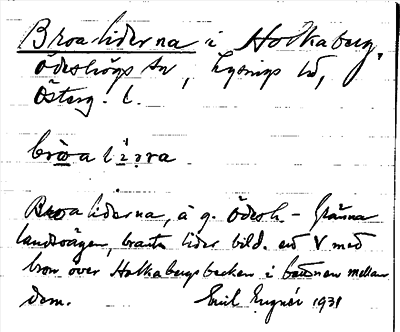 Broaliderna i Holkaberg,
Ödeshögs sn, Lysings hd,
Österg. l.
Broaliderna, å g. Ödesh. - Gränna
landsvägen, branta lider bild. ett V med
bron över Holkabergsbäcken i bottnen mellan
dem. Emil Engnér 1931